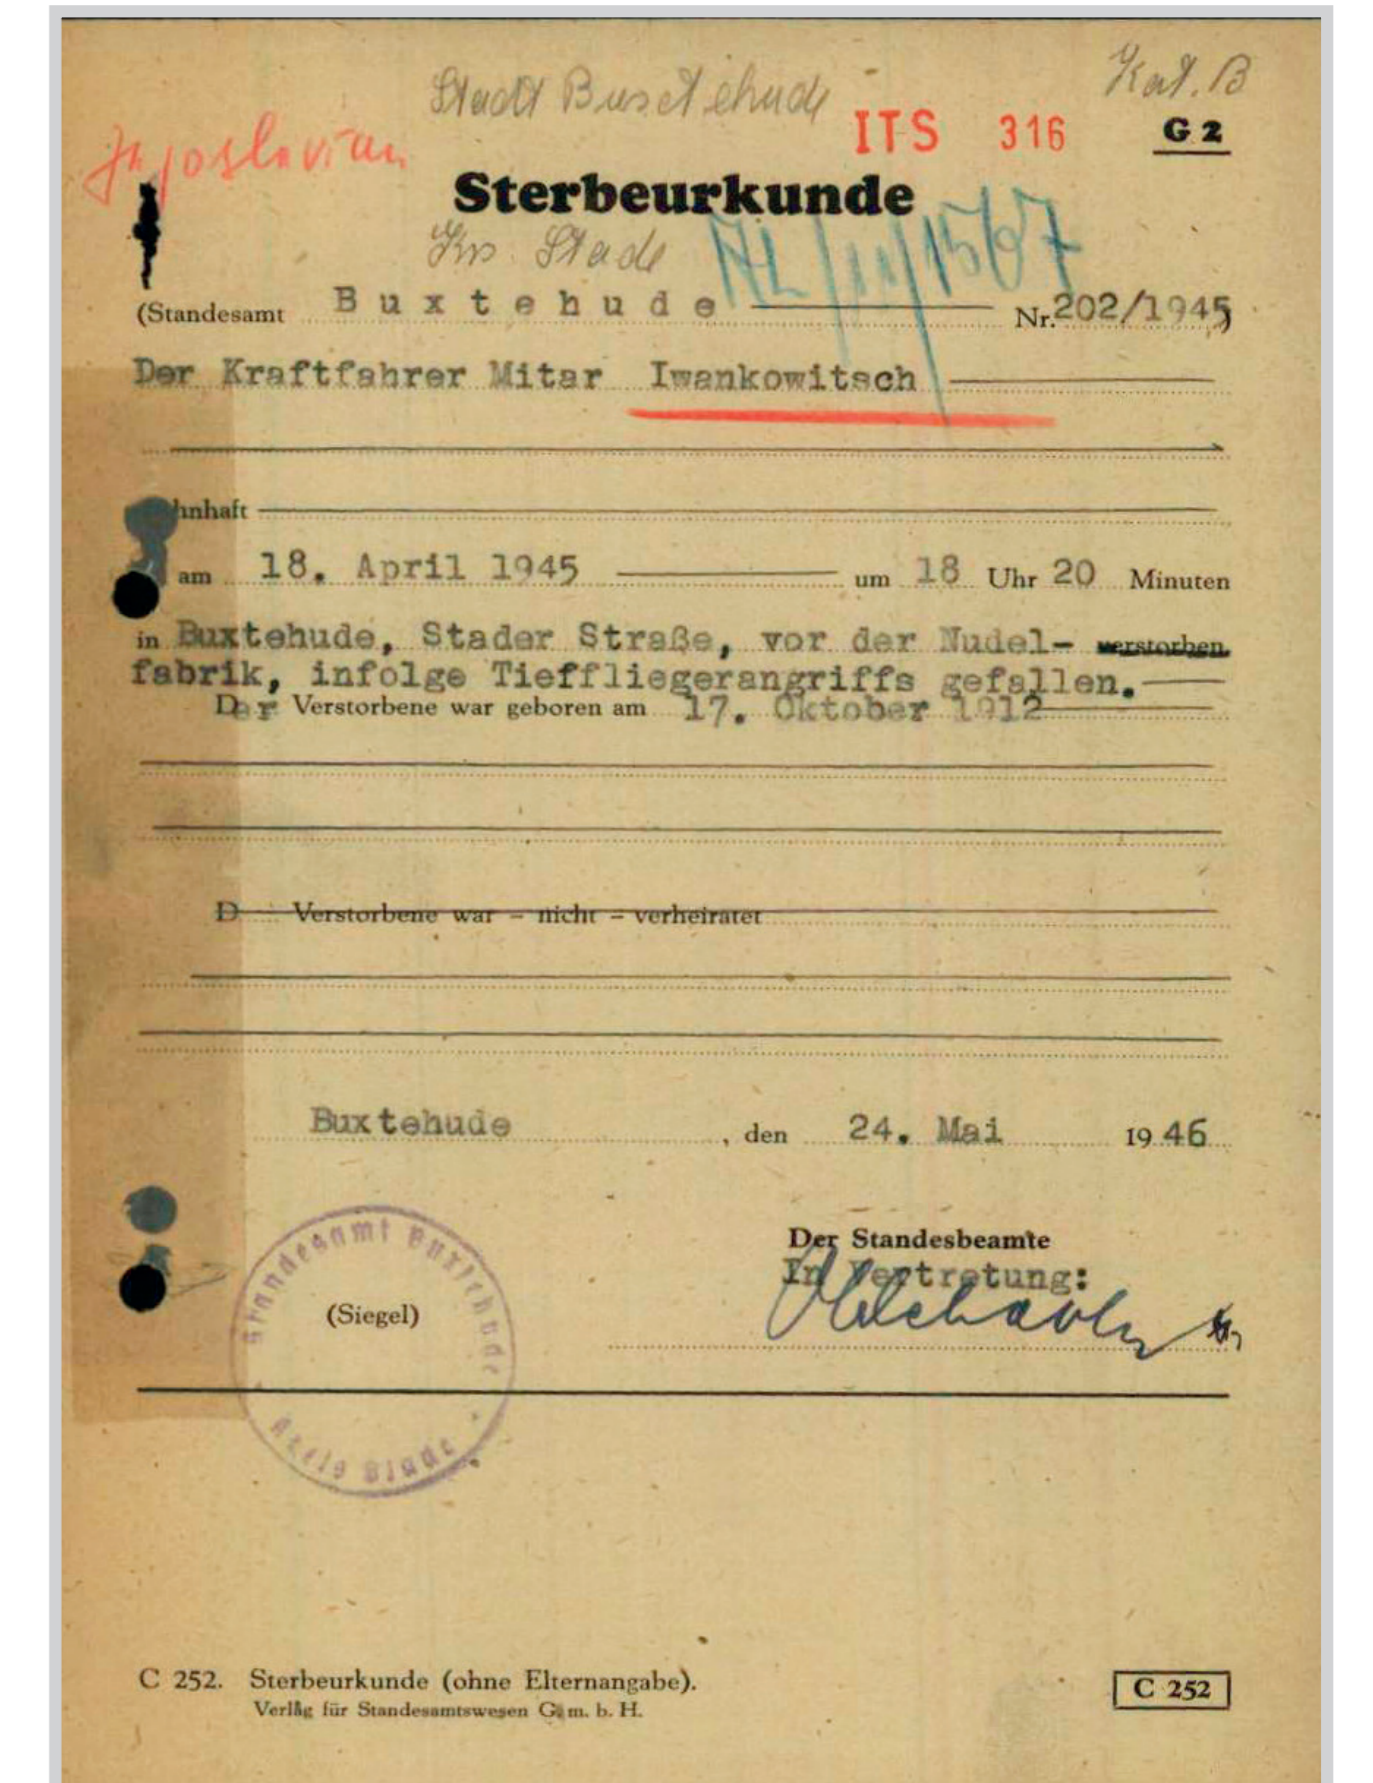 Kat. B
Stadt Buxtehude
ITS 316
G 2
Jugoslavian
Sterbeurkunde
Krs. Stade
(Standesamt Buxtehude Nr. 202/1945)
Der Kraftfahrer Mitar Iwankowitsch
hnhaft
am 18. April 1945 um 18 Uhr 20 Minuten
in Buxtehude, Stader Straße, vor der Nudel- verstorben
fabrik, infolge Tieffliegerangriffs gefallen.
Der Verstorbene war geboren am 17. Oktober 1912
D Verstorbene war – nicht – verheiratet
Buxtehude, den 24. Mai 1946
Der Standesbeamte
In Vertretung:
(Siegel)
Standesamt Buxtehude
Kreis Stade
C 252. Sterbeurkunde (ohne Elternangabe).
Verlag für Standesamtswesen G.m.b.H.
C 252